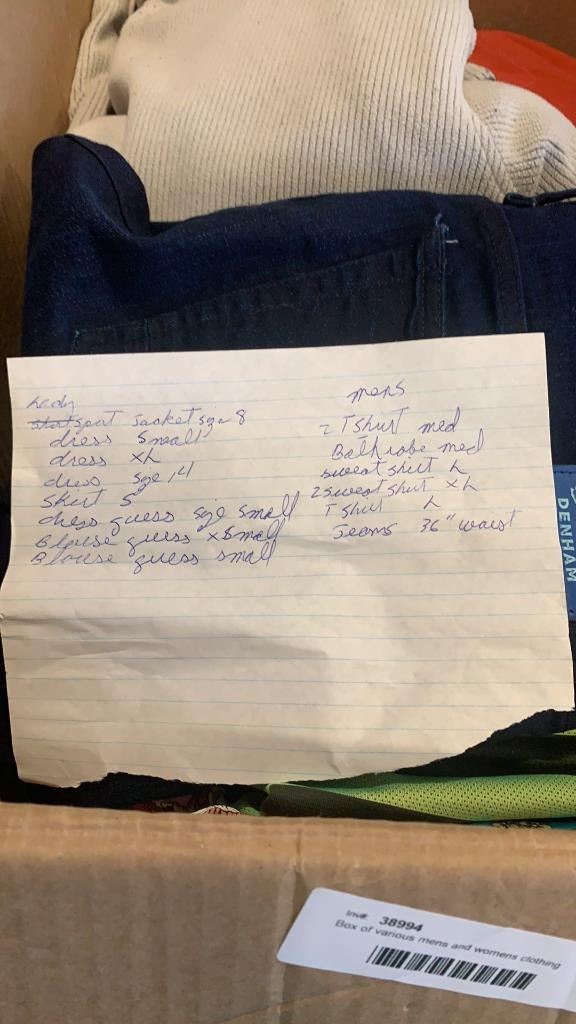 Lady
sport Jacket size 8
dress small
dress XL
dress size 14
Skirt S
dress guess size small
Blouse guess xSmall
Blouse guess small
mens
2 Tshirt med
Bathrobe med
sweat shirt L
2 sweat shirt XL
T Shirt L
Jeans 36" waist
DENHAM
Inv#: 38994
Box of various mens and womens clothing